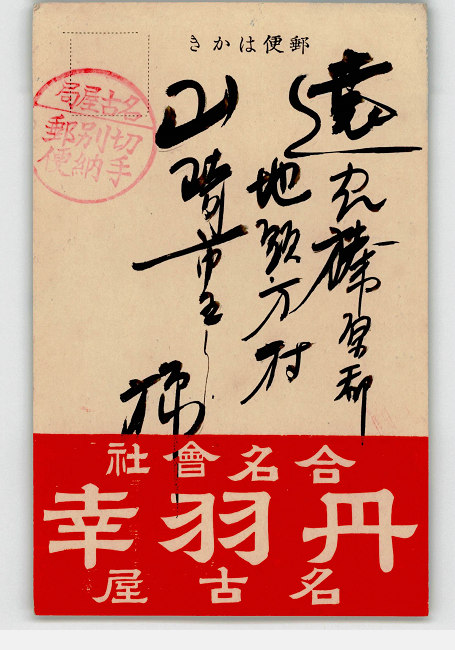 郵便はかき
名古屋局
切手
別納
郵便
遠州榛原郡
地頭方村
山崎市五郎様
合名會社
丹羽幸
名古屋